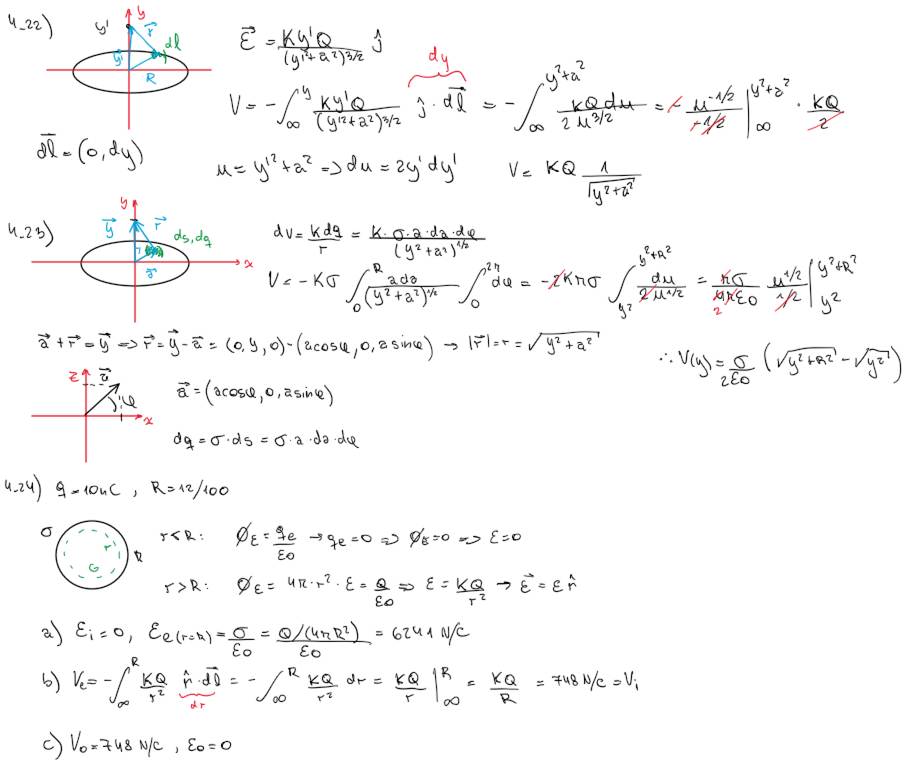 4_22)
y
y'
r⃗
dl
y⃗'
R
ε⃗ = Ky'Q/(y'²+a²)^3/2 ĵ
dy
V = -∫_∞^y Ky'Q/(y'²+a²)^3/2 ĵ·dl⃗ = -∫_∞^(y²+a²) KQdu/2u^3/2 = -u^-1/2/-1/2 |_∞^(y²+a²) · KQ/2
dl⃗ = (0, dy)
u = y'²+a² => du = 2y'dy'
V = KQ 1/√(y²+a²)
4_23)
y
y⃗
r⃗
ds, dq
x
dV = Kdq/r = K·σ·a·da·dφ/(y²+a²)^1/2
V = -Kσ ∫_0^R ada/(y²+a²)^1/2 ∫_0^2π dφ = -2Kπσ ∫_y²^(y²+R²) du/2u^1/2 = πσ/4πε0 u^1/2/1/2 |_y²^(y²+R²)
2
a⃗ + r⃗ = y⃗ => r⃗ = y⃗ - a⃗ = (0, y, 0) - (acosφ, 0, asinφ) → |r⃗| = r = √(y²+a²)
∴ V(y) = σ/2ε0 (√(y²+R²) - √y²)
z
a⃗
φ
x
a⃗ = (acosφ, 0, asinφ)
dq = σ·ds = σ·a·da·dφ
4_24) q = 10nC , R = 12/100
σ
r
G
R
r<R: ∅ε = qe/ε0 → qe = 0 => ∅ε = 0 => ε = 0
r>R: ∅ε = 4π·r²·ε = Q/ε0 => ε = KQ/r² → ε⃗ = ε r̂
a) εi = 0, εe(r=R) = σ/ε0 = Q/(4πR²)/ε0 = 6241 N/C
b) Ve = -∫_∞^R KQ/r² r̂·dl⃗ = -∫_∞^R KQ/r² dr = KQ/r |_∞^R = KQ/R = 748 N/C = Vi
dr
c) V0 = 748 N/C , ε0 = 0